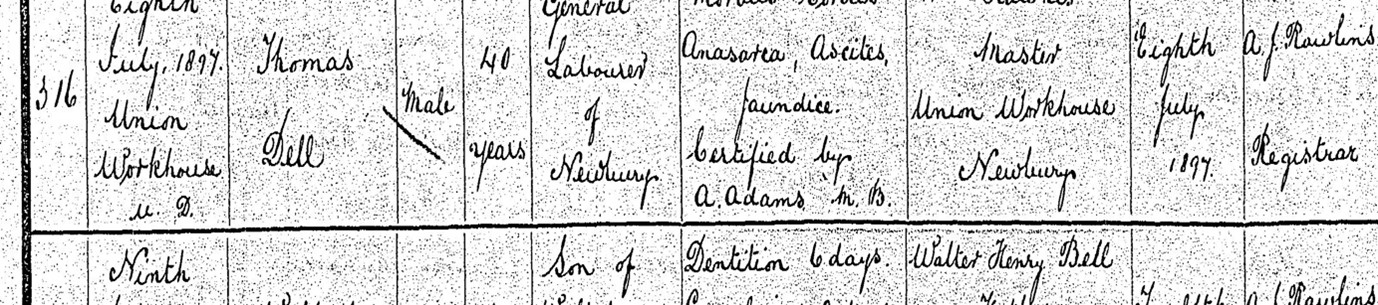 Eighth
July, 1897.
Union
Workhouse
u. D.
316
Thomas
Dell
Male
40
years
General
Labourer
of
Newbury
Anasarca, Ascites,
Jaundice.
Certified by
A. Adams M. B.
Master
Union Workhouse
Newbury
Eighth
July
1897.
A. J. Rawlins
Registrar
Ninth
Son of
Dentition 6 days.
Walter Henry Bell
A. J. Rawlins